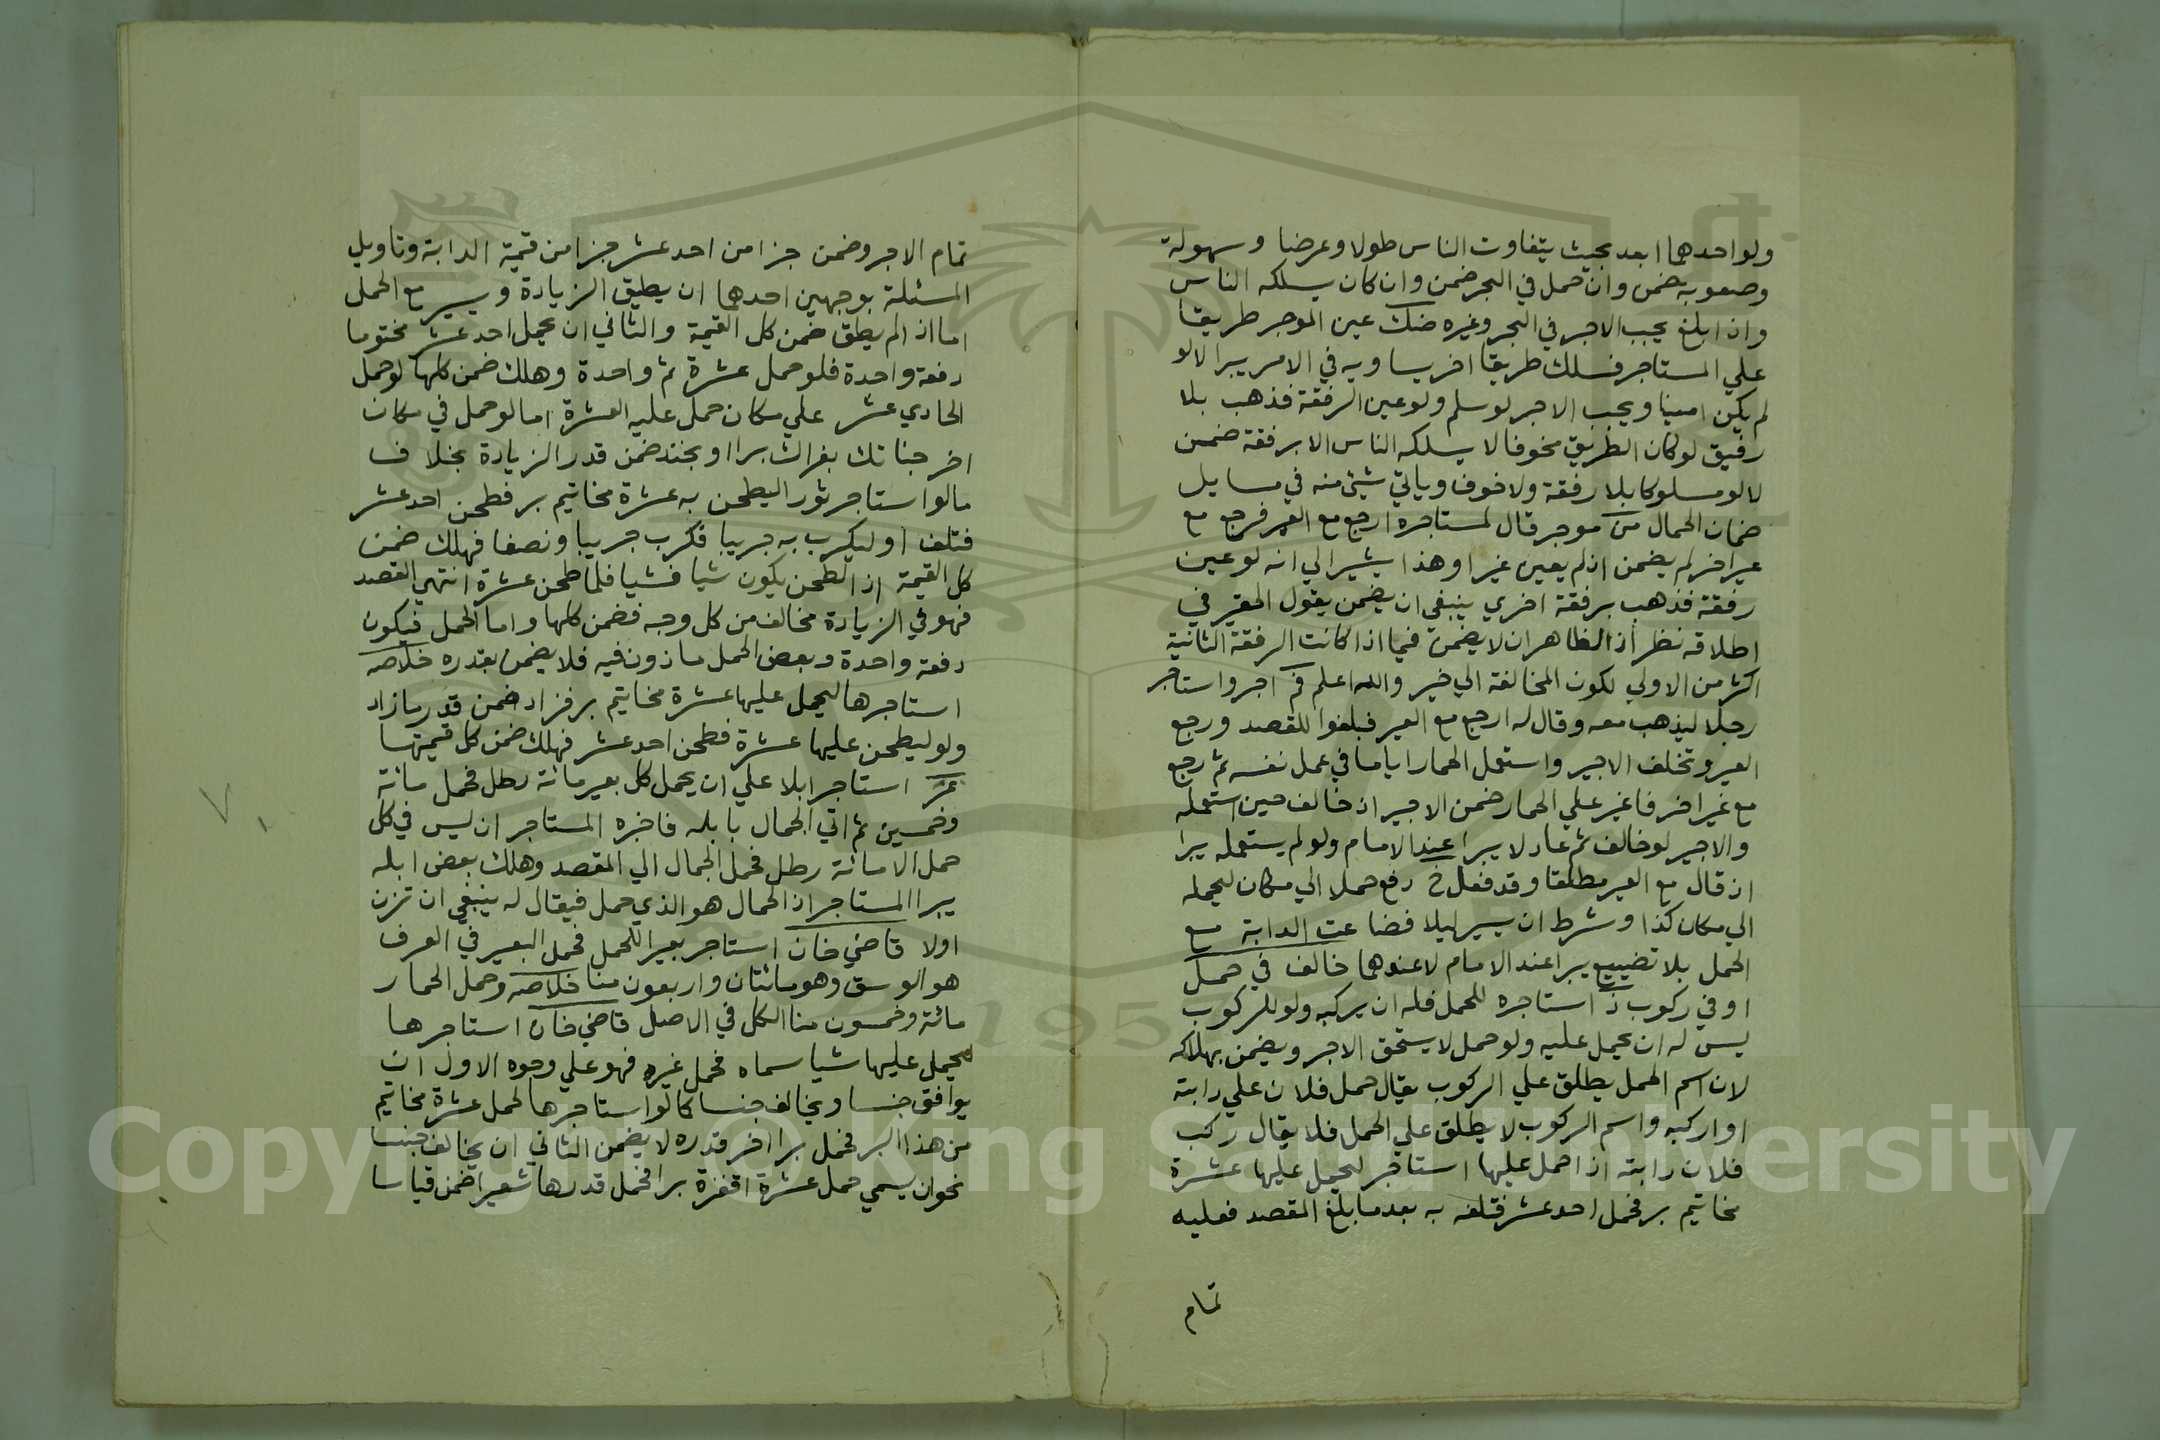 ولو احدهما ابعد بحيث يتفاوت الناس طولا وعرضا وسهولة
وصعوبة ضمن وان حمل في البحر ضمن وان كان يسلكه الناس
واذا بلغ يجب الاجر في البحر وغيره عين الموجر طريقا
علي المستاجر فسلك طريقا اخر يساويه في الامر يبرا لا لو
لم يكن امينا ويجب الاجر لو سلم ولو عين الرفقة فذهب بلا
رفيق لو كان الطريق مخوفا لا يسلكه الناس الا برفقة ضمن
لا لو مسلوكا بلا رفقة ولا خوف وياتي شيئ منه في مسايل
ضمان الحمال من موجر قال لمستاجره ارجع مع العير فرجع مع
عير اخر لم يضمن اذ لم يعين عيرا وهذا يشير الي انه لو عين
رفقة فذهب برفقة اخري ينبغي ان يضمن يقول الحقير في
اطلاقه نظر اذ الظاهر ان لا يضمن فيما اذا كانت الرفقة الثانية
اكثر من الاولي لكون المخالفة الي خير والله اعلم اجر واستاجر
رجلا ليذهب معه وقال له ارجع مع العير فبلغوا للقصد ورجع
العير وتخلف الاجير واستعمل الحمار اياما في عمل نفسه ثم رجع
مع عير اخر فاغير علي الحمار ضمن الاجير اذ خالف حين استعمله
والاجير لو خالف ثم عاد لا يبرا عند الامام ولو لم يستعمله يبرا
اذ قال مع العير مطلقا وقد فعل خ دفع حملا الي مكان ليحمله
الي مكان كذا وشرط ان يسير ليلا فضاعت الدابة مع
الحمل بلا تضييع يبرا عند الامام لا عندهما خالف في حمل
او في ركوب ذ استاجره للحمل فله ان يركبه ولو للركوب
ليس له ان يحمل عليه ولو حمل لا يستحق الاجر ويضمن بهلاكه
لان اسم الحمل يطلق علي الركوب يقال حمل فلان علي دابته
او اركبه واسم الركوب لا يطلق علي الحمل فلا يقال ركب
فلان دابته اذا حمل عليها استاجر ليحمل عليها عشرة
مخاتيم بر فحمل احد عشر فتلف به بعد ما بلغ المقصد فعليه
تمام
تمام الاجر وضمن جزا من احد عشر جزا من قيمة الدابة وتاويل
المسئلة بوجهين احدهما ان يطيق الزيادة ويسير مع الحمل
اما اذا لم يطق ضمن كل القيمة والثاني ان يحمل احد عشر مختوما
دفعة واحدة فلو حمل عشرة ثم واحدة وهلك ضمن كلها لو حمل
الحادي عشر علي مكان حمل عليه العشرة اما لو حمل في مكان
اخر ضمن قدر الزيادة بخلاف
ما لو استاجر ثورا ليطحن به عشرة مخاتيم بر فطحن احد عشر
فتلف او ليكرب به جريبا فكرب جريبا ونصفا فهلك ضمن
كل القيمة اذ الطحن يكون شيا فشيا فلما طحن عشرة انتهي القصد
فهو في الزيادة مخالف من كل وجه فضمن كلها واما الحمل فيكون
دفعة واحدة وبعض الحمل ماذون فيه فلا يضمن بقدره خلاصه
استاجرها ليحمل عليها عشرة مخاتيم بر فزاد ضمن قدر ما زاد
ولو ليطحن عليها عشرة فطحن احد عشر فهلك ضمن كل قيمتها
استاجر ابلا علي ان يحمل كل بعير مائة رطل فحمل مائة
وخمسين ثم اتي الجمال بابله فاخبره المستاجر ان ليس في كل
حمل الا مائة رطل فحمل الجمال الي المقصد وهلك بعض ابله
يبرا المستاجر اذ الحمال هو الذي حمل فيقال له ينبغي ان تزن
اولا قاضي خان استاجر بعيرا للحمل فحمل البعير في العرف
هو الوسق وهو مائتان واربعون منا خلاصه وحمل الحمار
مائة وخمسون منا الكل في الاصل قاضي خان استاجرها
ليحمل عليها شيا سماه فحمل غيره فهو علي وجوه الاول ان
يوافق جنسا ويخالف جنسا كما لو استاجرها لحمل عشرة مخاتيم
من هذا البر فحمل برا اخر قدره لا يضمن الثاني ان يخالف جنسا
نحو ان يسمي حمل عشرة اقفزة برا فحمل قدرها شعيرا ضمن قياسا
Copyright © King Saud University
195